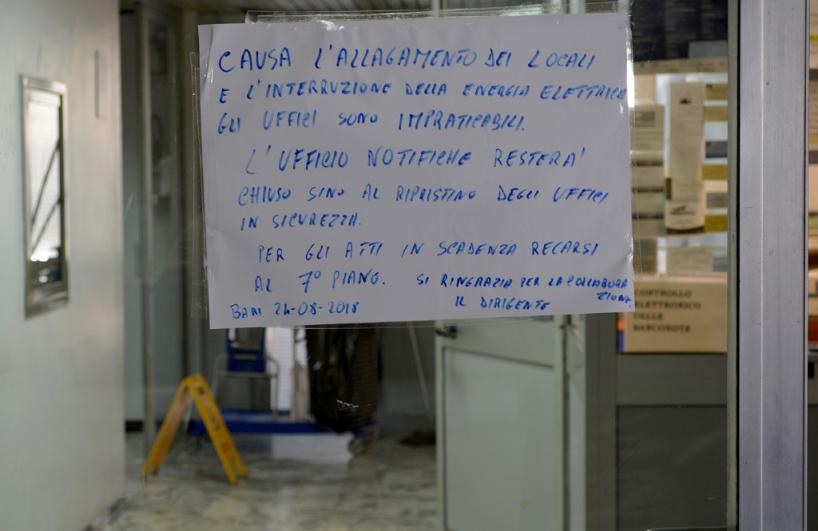 CAUSA L'ALLAGAMENTO DEI LOCALI
E L'INTERRUZIONE DELLA ENERGIA ELETTRICA
GLI UFFICI SONO IMPRATICABILI.
L'UFFICIO NOTIFICHE RESTERA'
CHIUSO SINO AL RIPRISTINO DEGLI UFFICI
IN SICUREZZA.
PER GLI ATTI IN SCADENZA RECARSI
AL 7° PIANO. SI RINGRAZIA PER LA COLLABORA
ZIONE
BARI 24-08-2018 IL DIRIGENTE
CONTROLLO
ELETTRONICO
DELLE